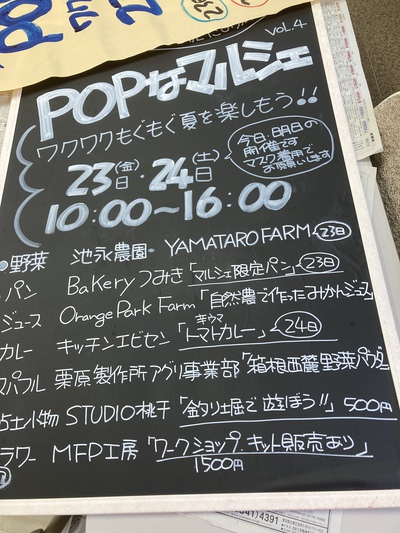 vol.4
POPなマルシェ
ワクワクもぐもぐ夏を楽しもう!!
23日(金)・24日(土)
10:00〜16:00
今日、明日の
開催です
マスク着用で
お願いします
●野菜 池永農園・YAMATARO FARM→23日
パン Bakeryつみき「マルシェ限定パン」→23日
ジュース Orange Park Farm「自然農で作ったみかんジュース」
カレー キッチンエビセン「トマトカレー」→24日
スパフル 栗原製作所アグリ事業部「箱根西麓野菜パウダー
粘土小物 STUDIO桃子「金タリ土屈で遊ぼう!!」500円
ラワー MFP工房「ワークショップ、キット販売あり」
1500円
41)4391